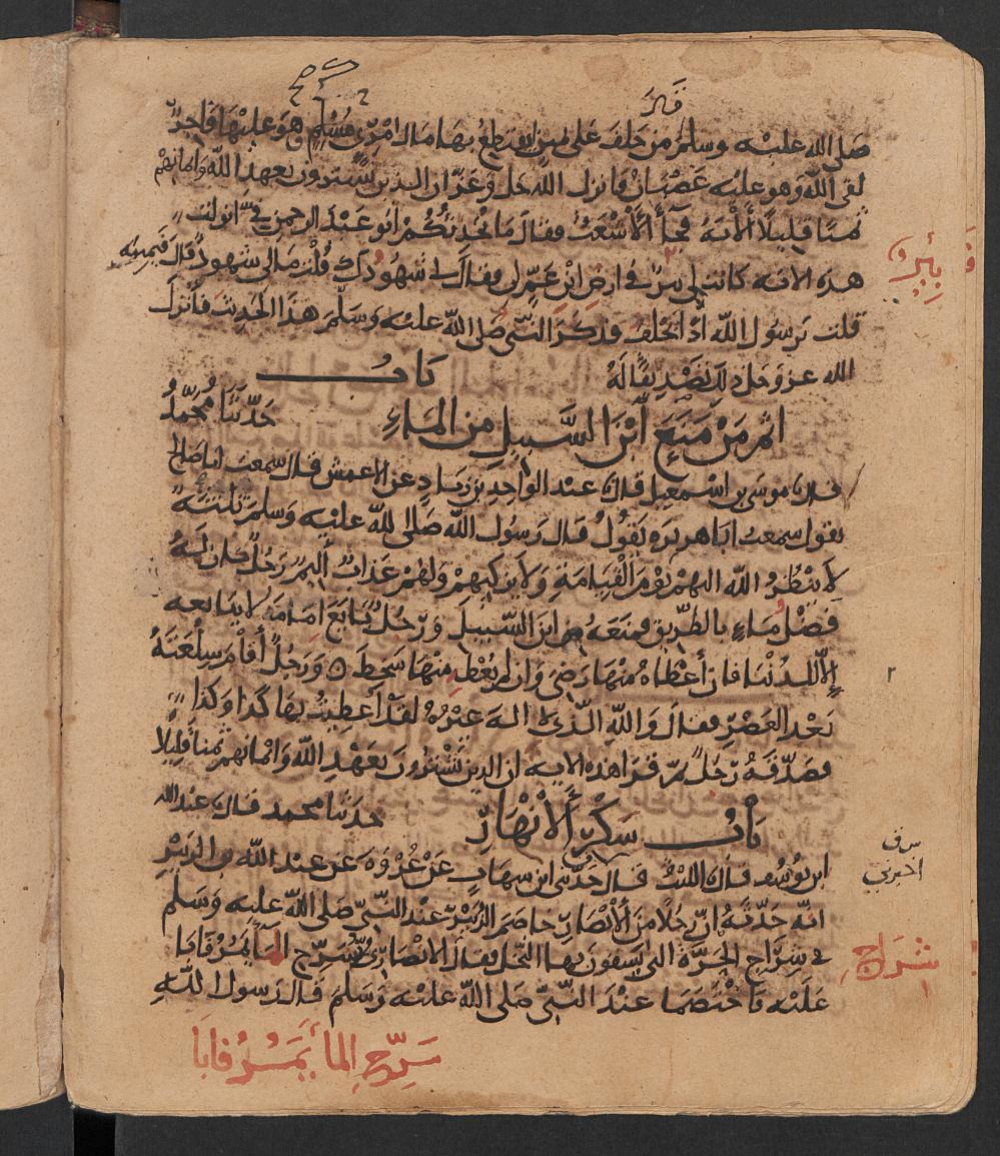 قال
صلى الله عليه وسلم من حلف على يمين يقتطع بها مال امرئ مسلم هو عليها فاجر
لقي الله وهو عليه غضبان فانزل الله جل وعز ان الذين يشترون بعهد الله وايمانهم
ثمنا قليلا الاية فجا الاشعث فقال ما يحدثكم ابو عبد الرحمن في انزلت
هذه الاية كانت لي بئر في ارض ابن عم لي فقال لي شهودك قلت ما لي شهود قال فيمينه
بئر
قلت يرسول الله اذا يحلف فذكر النبي صلى الله عليه وسلم هذا الحديث فانزل
الله عز وجل ذلك تصديقا له باب
اثم من منع ابن السبيل من الماء حدثنا محمد
قال نا موسى بن اسمعيل قال نا عبد الواحد بن زياد عن الاعمش قال سمعت ابا صالح
يقول سمعت ابا هريرة يقول قال رسول الله صلى الله عليه وسلم ثلثة
لا ينظر الله اليهم يوم القيامة ولا يزكيهم ولهم عذاب اليم رجل كان له
فضل ماء بالطريق فمنعه من ابن السبيل ورجل بايع امامه لا يبايعه
الا لدنيا فان أعطاه منها رضي وان لم يعطه منها سخط ورجل أقام سلعته
بعد العصر فقال والله الذي لا اله غيره لقد اعطيت بها كذا وكذا
فصدقه رجل ثم قرا هذه الاية ان الذين يشترون بعهد الله وايمانهم ثمنا قليلا
باب سكر الأنهار حدثنا محمد قال نا عبد الله
ابن يوسف قال نا الليث قال حدثني ابن شهاب عن عروة عن عبد الله بن الزبير
اخبرني
انه حدثه ان رجلا من الأنصار خاصم الزبير عند النبي صلى الله عليه وسلم
في شراج الحرة التي يسقون بها النخل فقال الانصاري سرح الما يمر فابا
شراج
عليه فاختصما عند النبي صلى الله عليه وسلم قال رسول الله
سرح الما يمر فابا